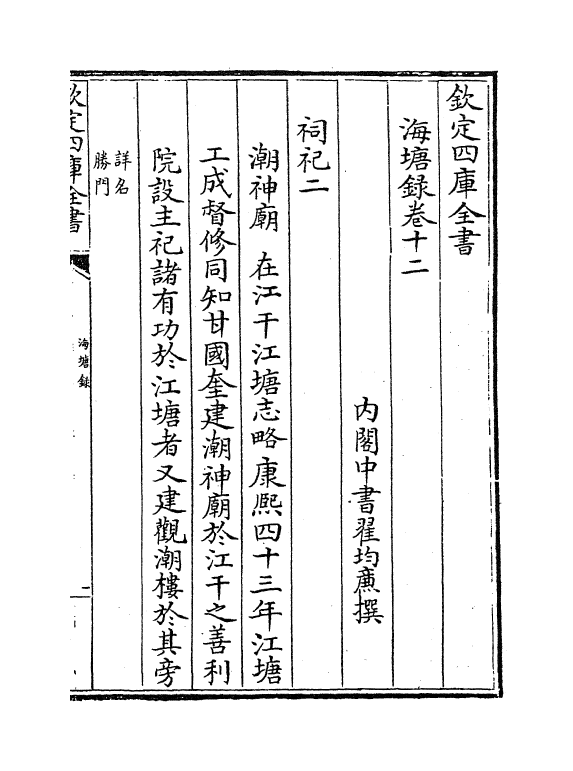 欽定四庫全書
海塘録卷十二
內閣中書翟均廉撰
祠祀二
潮神廟 在江干江塘志略康熙四十三年江塘
工成督修同知甘國奎建潮神廟於江干之善利
院設主祀諸有功於江塘者又建觀潮樓於其旁
詳名
勝門
欽定四庫全書
海塘録